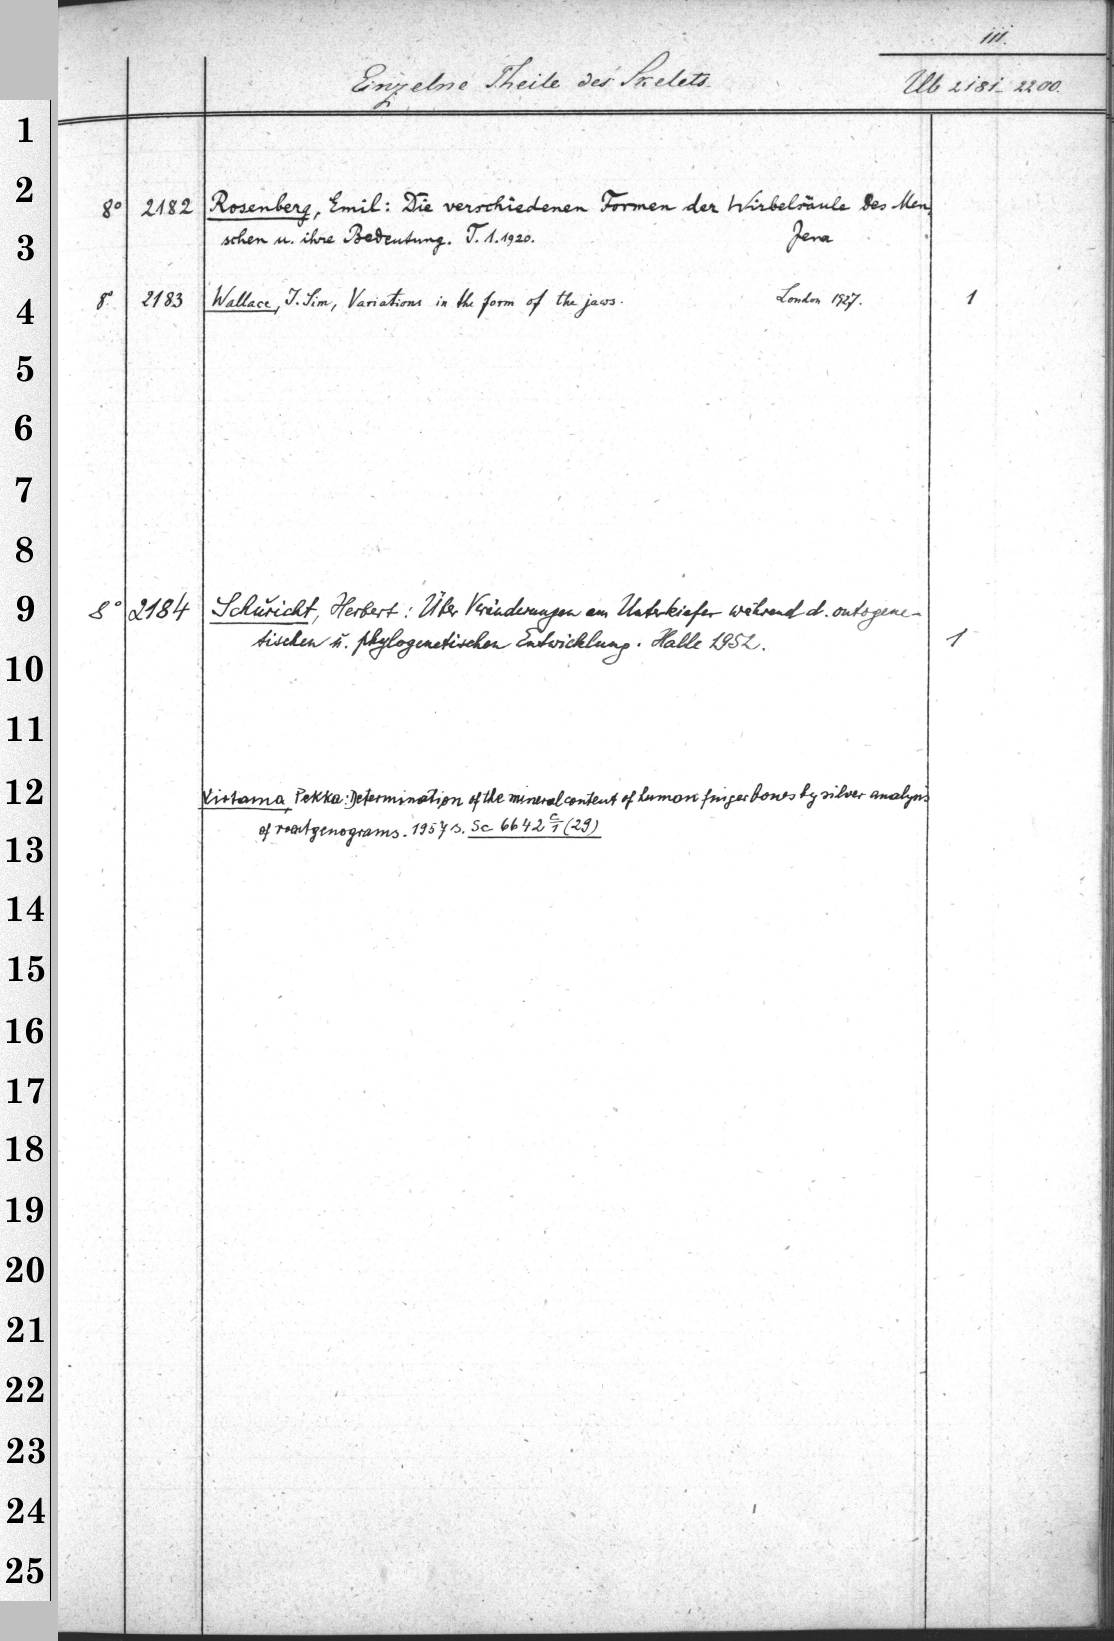 iii.
Einzelne Theile des Skelets.
Ub 2181-2200.
1
2
8° 2182 Rosenberg, Emil: Die verschiedenen Formen der Wirbelsäule des Men,
3
schen u. ihre Bedeutung. T. 1. 1920. Jena
8° 2183 Wallace, J. Sim, Variations in the form of the jaws. London 1927. 1
4
5
6
7
8
9
8° 2184 Schuricht, Herbert: Über Veränderungen am Unterkiefer während d. ontogene-
tischen u. phylogenetischen Entwicklung. Halle 1952. 1
10
11
12
Virtama, Pekka: Determination of the mineral content of human finger bones by silver analysis
of roentgenograms. 1957 s. Sc 6642 c/1 (29)
13
14
15
16
17
18
19
20
21
22
23
24
25